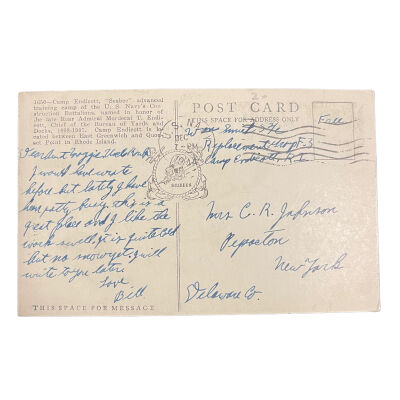 1650—Camp Endicott, "Seabee" advanced
training camp of the U. S. Navy's Con-
struction Battalions, named in honor of
the late Rear Admiral Mordecai T. Endi-
cott, Chief of the Bureau of Yards and
Docks, 1898-1907. Camp Endicott is lo-
cated between East Greenwich and Quon-
set Point in Rhode Island.
Dear Aunt Maggie
I would have wrote
before but lately I have
been pretty busy. this is a
great place and I like the
work swell. it is quite cold
but no snow yet. I will
write to you later.
Love
Bill.
THIS SPACE FOR MESSAGE
POST CARD
THIS SPACE FOR ADDRESS ONLY
Free
U.S. NAVY
DEC
SEABEES
Smith
Replacement Group F-3
Camp Endicott, R.I.
Mrs C. R. Johnson
Pepacton
New York
Delaware Co.